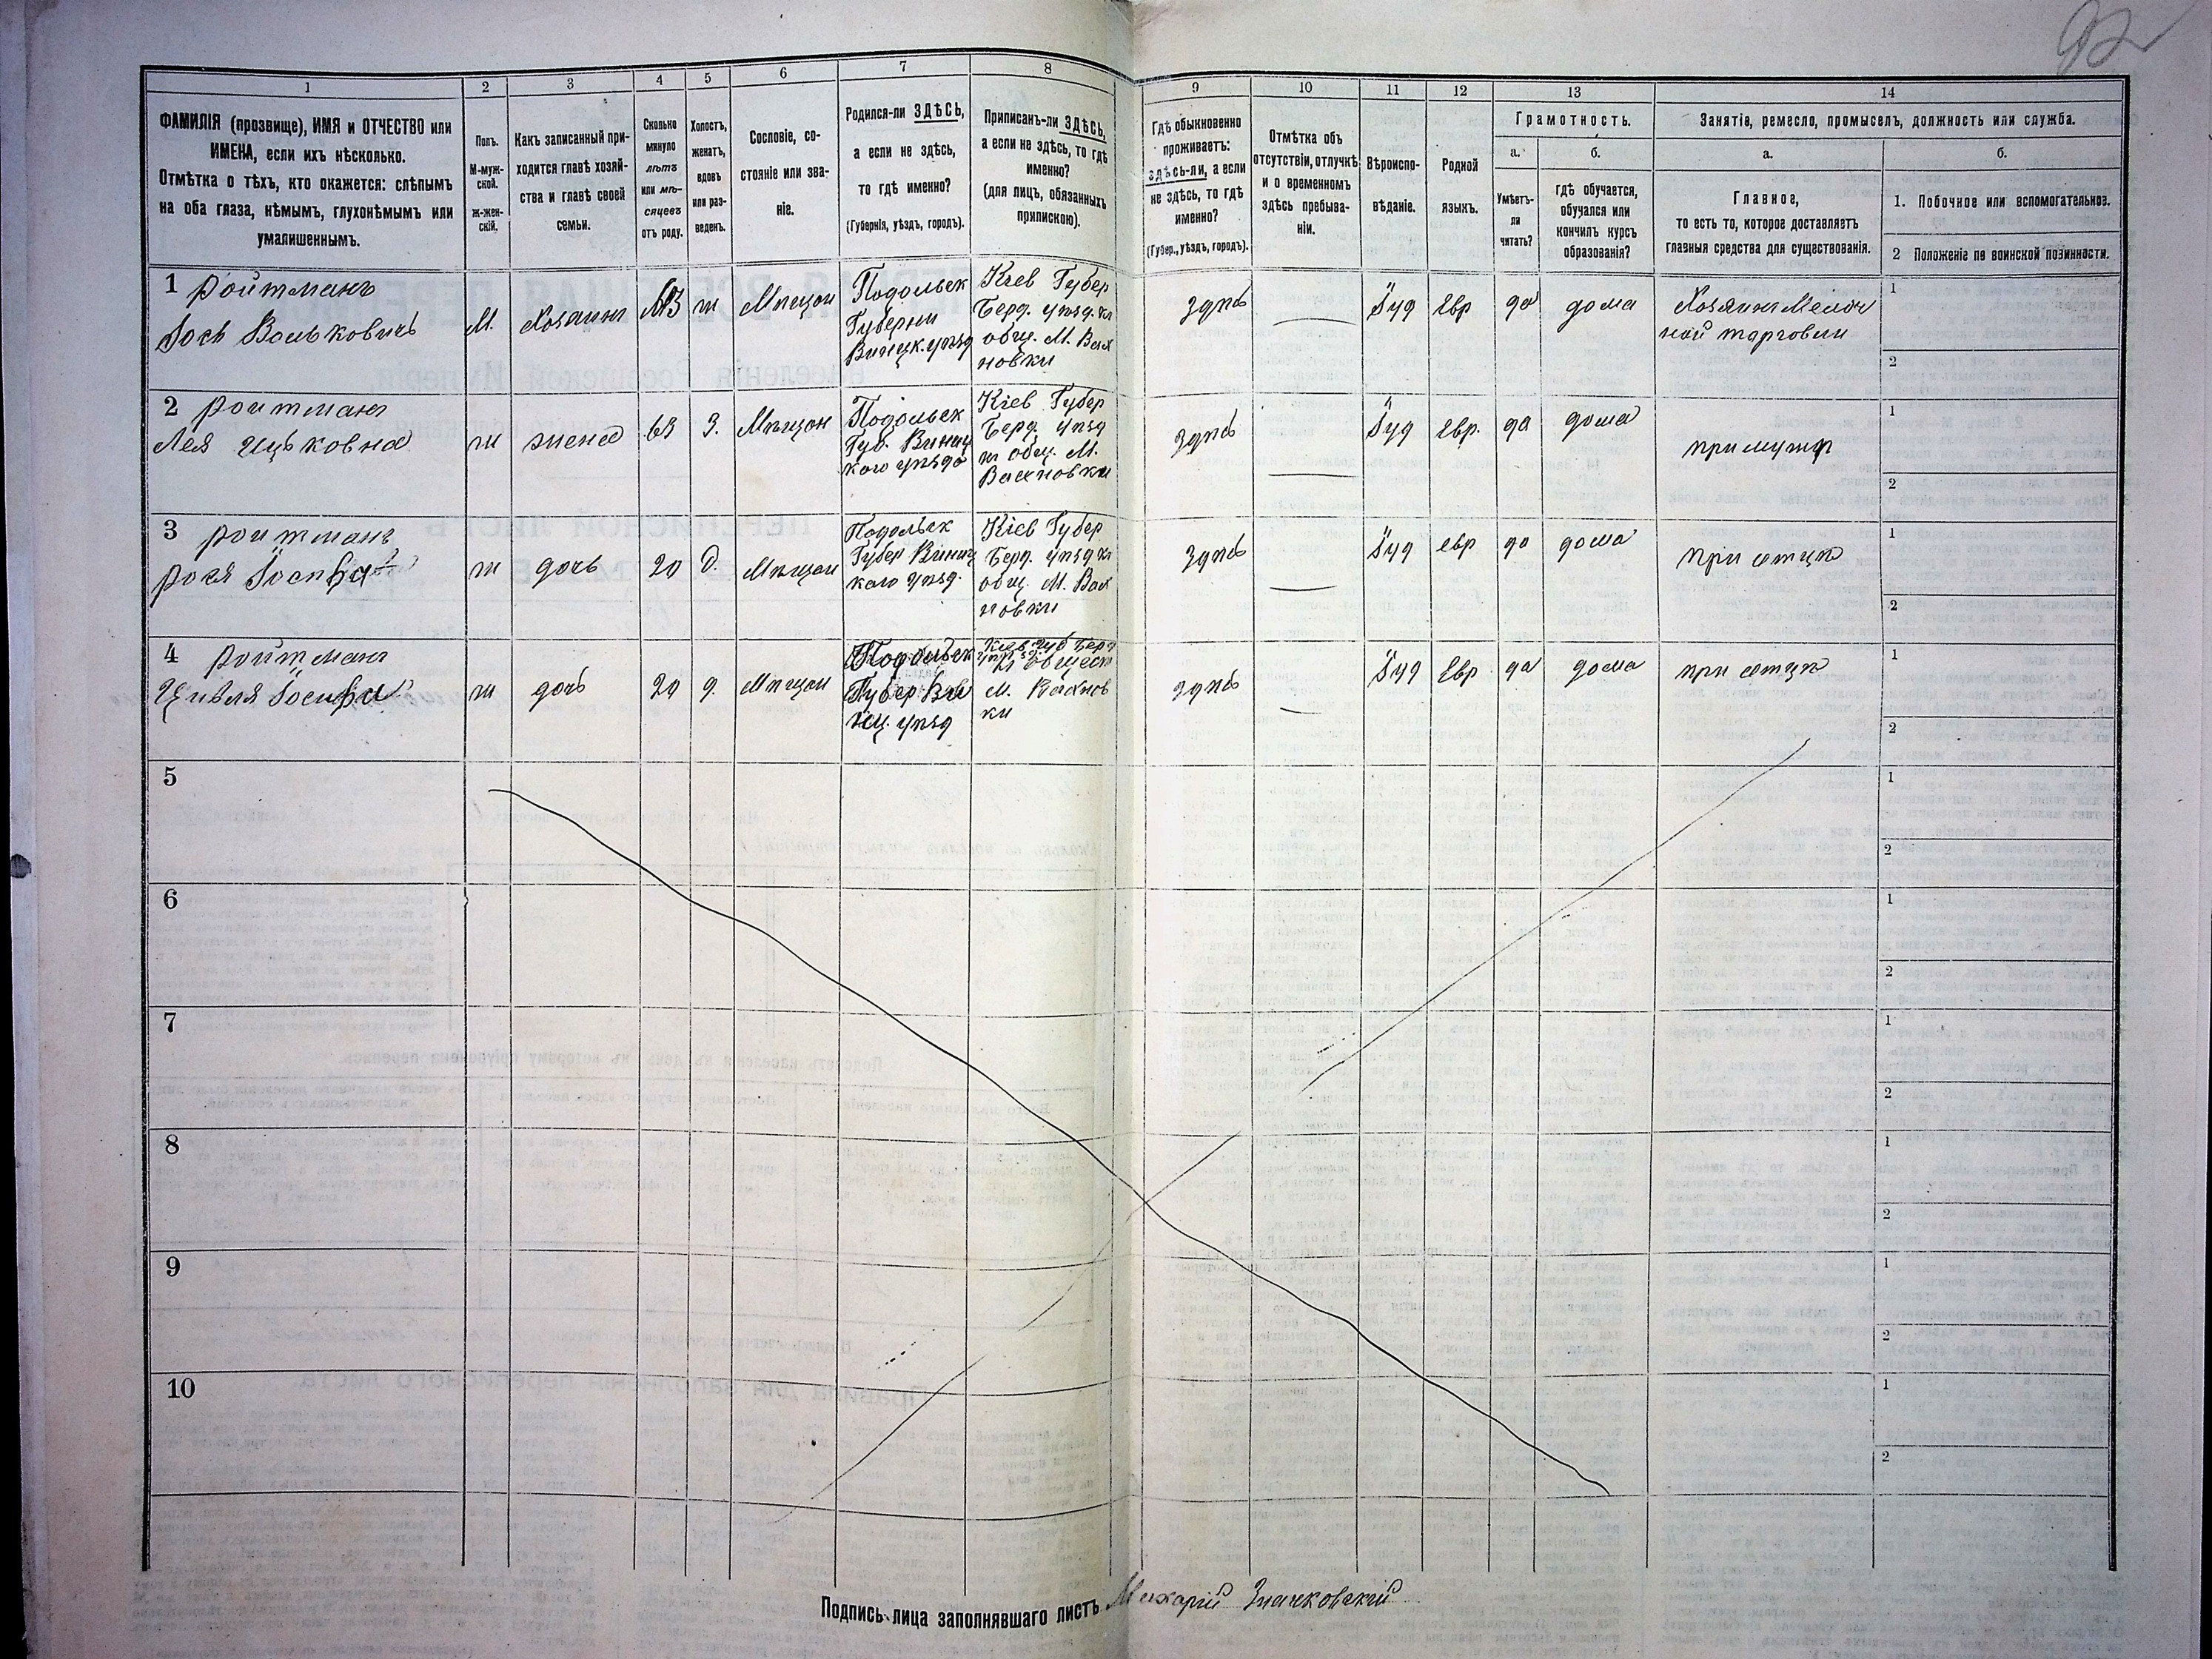 92
1
2
3
4
5
6
7
8
9
10
11
12
13
14
ФАМИЛІЯ (прозвище), ИМЯ и ОТЧЕСТВО или
ИМЕНА, если ихъ нѣсколько.
Отмѣтка о тѣхъ, кто окажется: слѣпымъ
на оба глаза, нѣмымъ, глухонѣмымъ или
умалишеннымъ.
Полъ.
М-муж-
ской.
ж-жен-
скій.
Какъ записанный при-
ходится главѣ хозяй-
ства и главѣ своей
семьи.
Сколько
минуло
лѣтъ
или мѣ-
сяцевъ
отъ роду.
Холостъ,
женатъ,
вдовъ
или раз-
веденъ.
Сословіе, со-
стояніе или зва-
ніе.
Родился-ли ЗДѢСЬ,
а если не здѣсь,
то гдѣ именно?
(Губернія, уѣздъ, городъ).
Приписанъ-ли ЗДѢСЬ,
а если не здѣсь, то гдѣ
именно?
(для лицъ, обязанныхъ
припискою).
Гдѣ обыкновенно
проживаетъ:
здѣсь-ли, а если
не здѣсь, то гдѣ
именно?
(Губер., уѣздъ, городъ).
Отмѣтка объ
отсутствіи, отлучкѣ
и о временномъ
здѣсь пребыва-
ніи.
Вѣроиспо-
вѣданіе.
Родной
языкъ.
Грамотность.
а.
б.
Умѣетъ-
ли
читать?
гдѣ обучается,
обучался или
кончилъ курсъ
образованія?
Занятіе, ремесло, промыселъ, должность или служба.
а.
б.
Главное,
то есть то, которое доставляетъ
главныя средства для существованія.
1. Побочное или вспомогательное.
2 Положеніе по воинской повинности.
1 Ройтманъ
Іось Вольковичъ
М.
Хозяинъ
63
ж
Мѣщан
Подольск
Губерни
Виницк. уѣзд
Кіев Губер
Берд. уѣзд. къ
общ. М. Вах
новки
Здѣсь
Іуд
Евр
да
дома
Хозяин Мелоч
ной торговли
1
2
2 Ройтман
Лея Ицьковна
ж
жена
63
З.
Мѣщан
Подольск
Губ. Виниц
каго уѣзда
Кіев Губер
Берд. уѣзд
общ. М.
Вахновки
Здѣсь
Іуд
Евр.
да
дома
при мужѣ
1
2
3 Ройтманъ
Рося
ж
дочь
20
д.
Мѣщан
Подольск
Губер Виниц
каго уѣзд.
Кіев Губер
Берд. уѣзд къ
общ. М. Вах
новки
Здѣсь
Іуд
евр
да
дома
при отцѣ
1
2
4 Ройтман
Цивля
ж
дочь
20
д.
Мѣщан
Подольск
Губер Ви
ниц. уѣзд
Кіев. Губ Берд
М. Вахнов
ки
Здѣсь
Іуд
Евр
да
дома
при отцѣ
1
2
5
1
2
6
1
2
7
1
2
8
1
2
9
1
2
10
1
2
Подпись лица заполнявшаго листъ